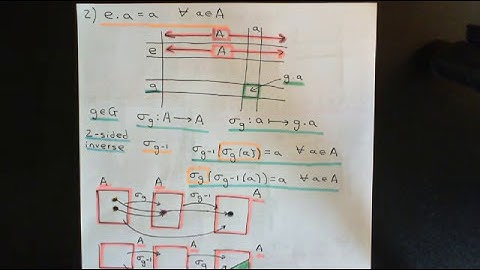 2) e.a = a ∀ a∈A
a
A
e A
g g.a
g∈G σ_g : A → A σ_g : a ↦ g.a
2-sided
inverse σ_g-1 σ_g-1(σ_g(a)) = a ∀ a∈A
σ_g(σ_g-1(a)) = a ∀ a∈A
A σ_g A σ_g-1 A
A σ_g-1 A σ_g A